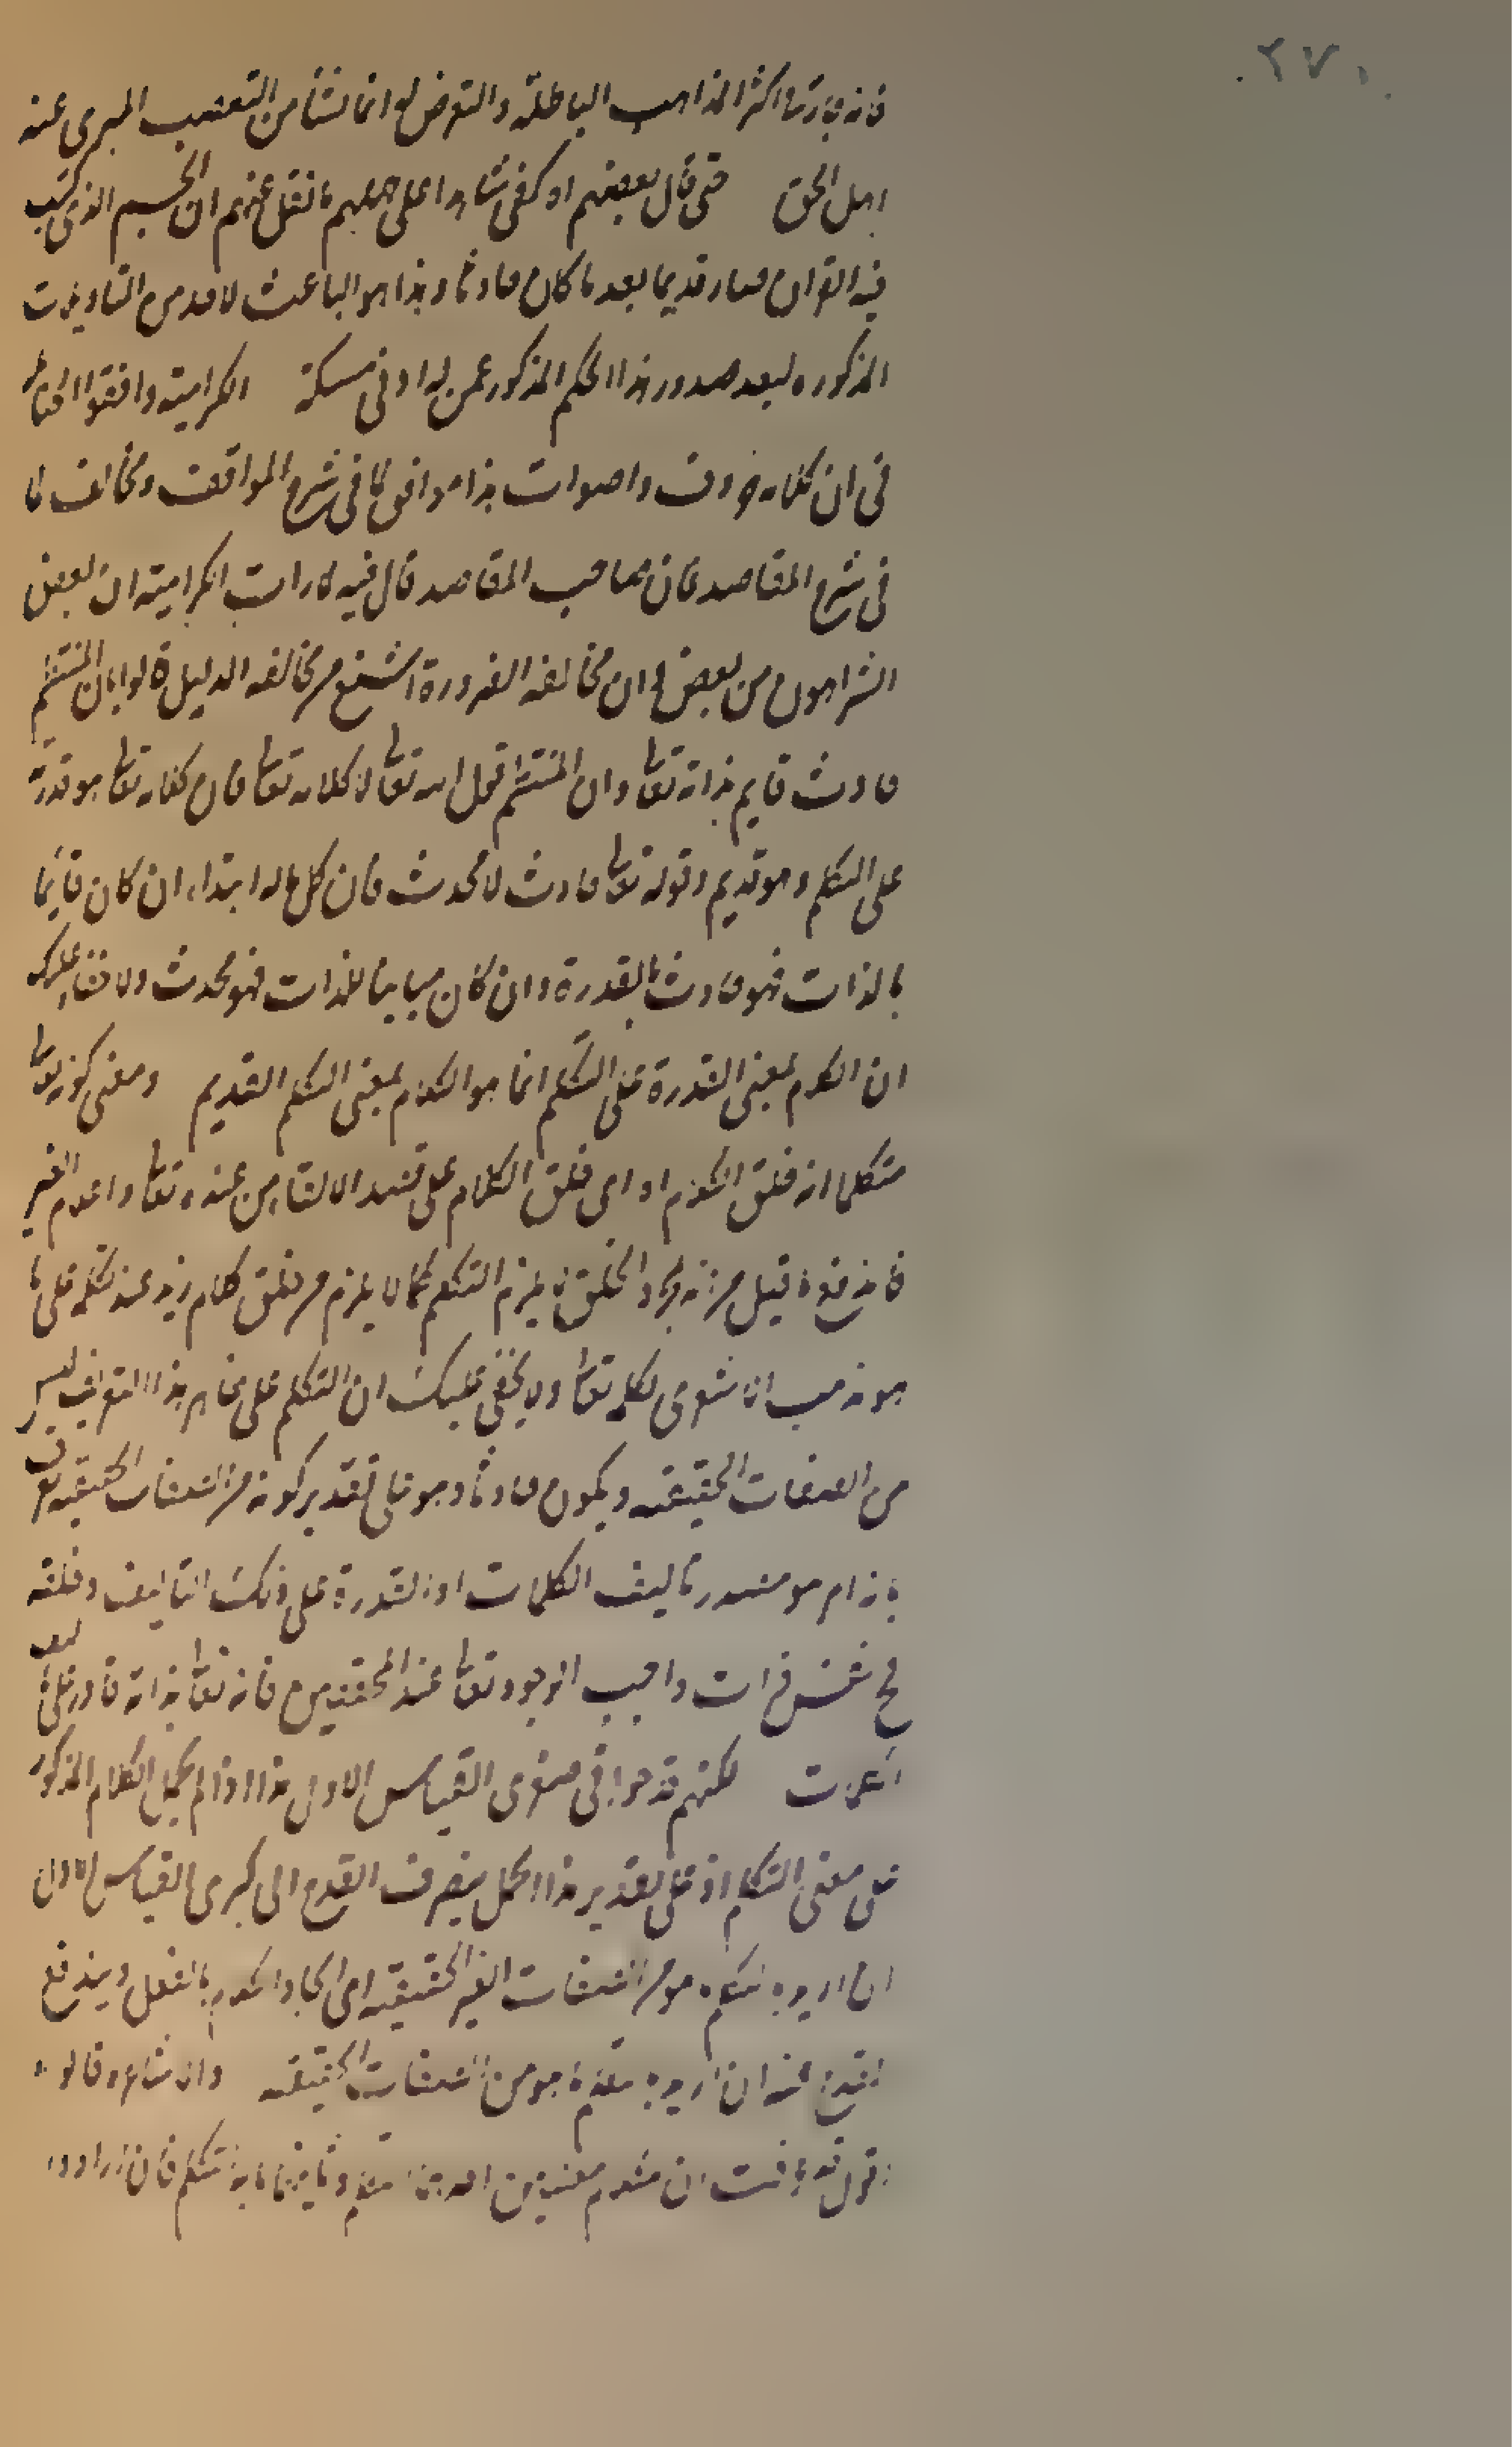 ٢٧٠
اكثر المذاهب الباطلة والتعرض لو انما نشأ من التعصب المبرى عنه
اهل الحق حتى قال بعضهم او كفى شاهدا على جهلهم ما نقل عنهم ان الجسم الذى كتب
فيه القران صار قديما بعد ما كان حادثا وهذا هو الباعث لاحد من التاويلات
المذكوره لبعد صدور هذا الحكم المذكور عمن له ادنى مسكة الكرامية وافقوا الحنابلة
فى ان كلامه حروف واصوات هذا موافق لما فى شرح المواقف ومخالف لما
فى شرح المقاصد فان صاحب المقاصد قال فيه لما رات الكرامية ان بعض
الشر اهون من بعض وان مخالفه الضرورة اشنع من مخالفه الدليل قالوا بان المنتظم
حادث قايم بذاته تعالى وان المنتظم قول الله تعالى لا كلامه تعالى فان كلامه تعالى هو قدرته
على التكلم وهو قديم وقوله تعالى حادث لا محدث فان كل ما له ابتداء ان كان قائما
بالذات فهو حادث بالقدرة وان كان مباينا للذات فهو محدث ولا خفاء عليك
ان الكلام بمعنى القدرة على التكلم انما هو الكلام بمعنى التكلم القديم ومعنى كونه تعالى
متكلما انه خلق الكلام او اى خلق الكلام على قصد الالقاء من عنده تعالى و اعلام الغير
فاندفع ما قيل من انه مجرد الخلق لا يلزم التكلم كما لا يلزم من خلق كلام زيد عند تكلمه على ما
هو مذهب الاشعرى تكلمه تعالى ولا يخفى عليك ان التكلم على ظاهر هذا التعريف ليس
من الصفات الحقيقيه ويكون حادثا وهو على تقدير كونه من الصفات الحقيقيه
امر هو مصدر تاليف الكلمات او القدرة على ذلك التاليف وخلقه
ذات واجب الوجود تعالى عند المحققين فانه تعالى بذاته قادر على
لكنهم قدحوا فى صغرى القياس الاول هذا اذا لم يحمل الكلام المذكور
على معنى التكلم اذ على تقدير هذا الحمل ينصرف القدح الى كبرى القياس الاول
ان اريد به هو من الصفات الغير الحقيقيه اى ايجاد الكلام بالفعل ويندفع
القدح عنه ان اريد به ما هو من الصفات الحقيقيه
اقول قد عرفت ان معنيين احدهما وثانيهما متكلم فان